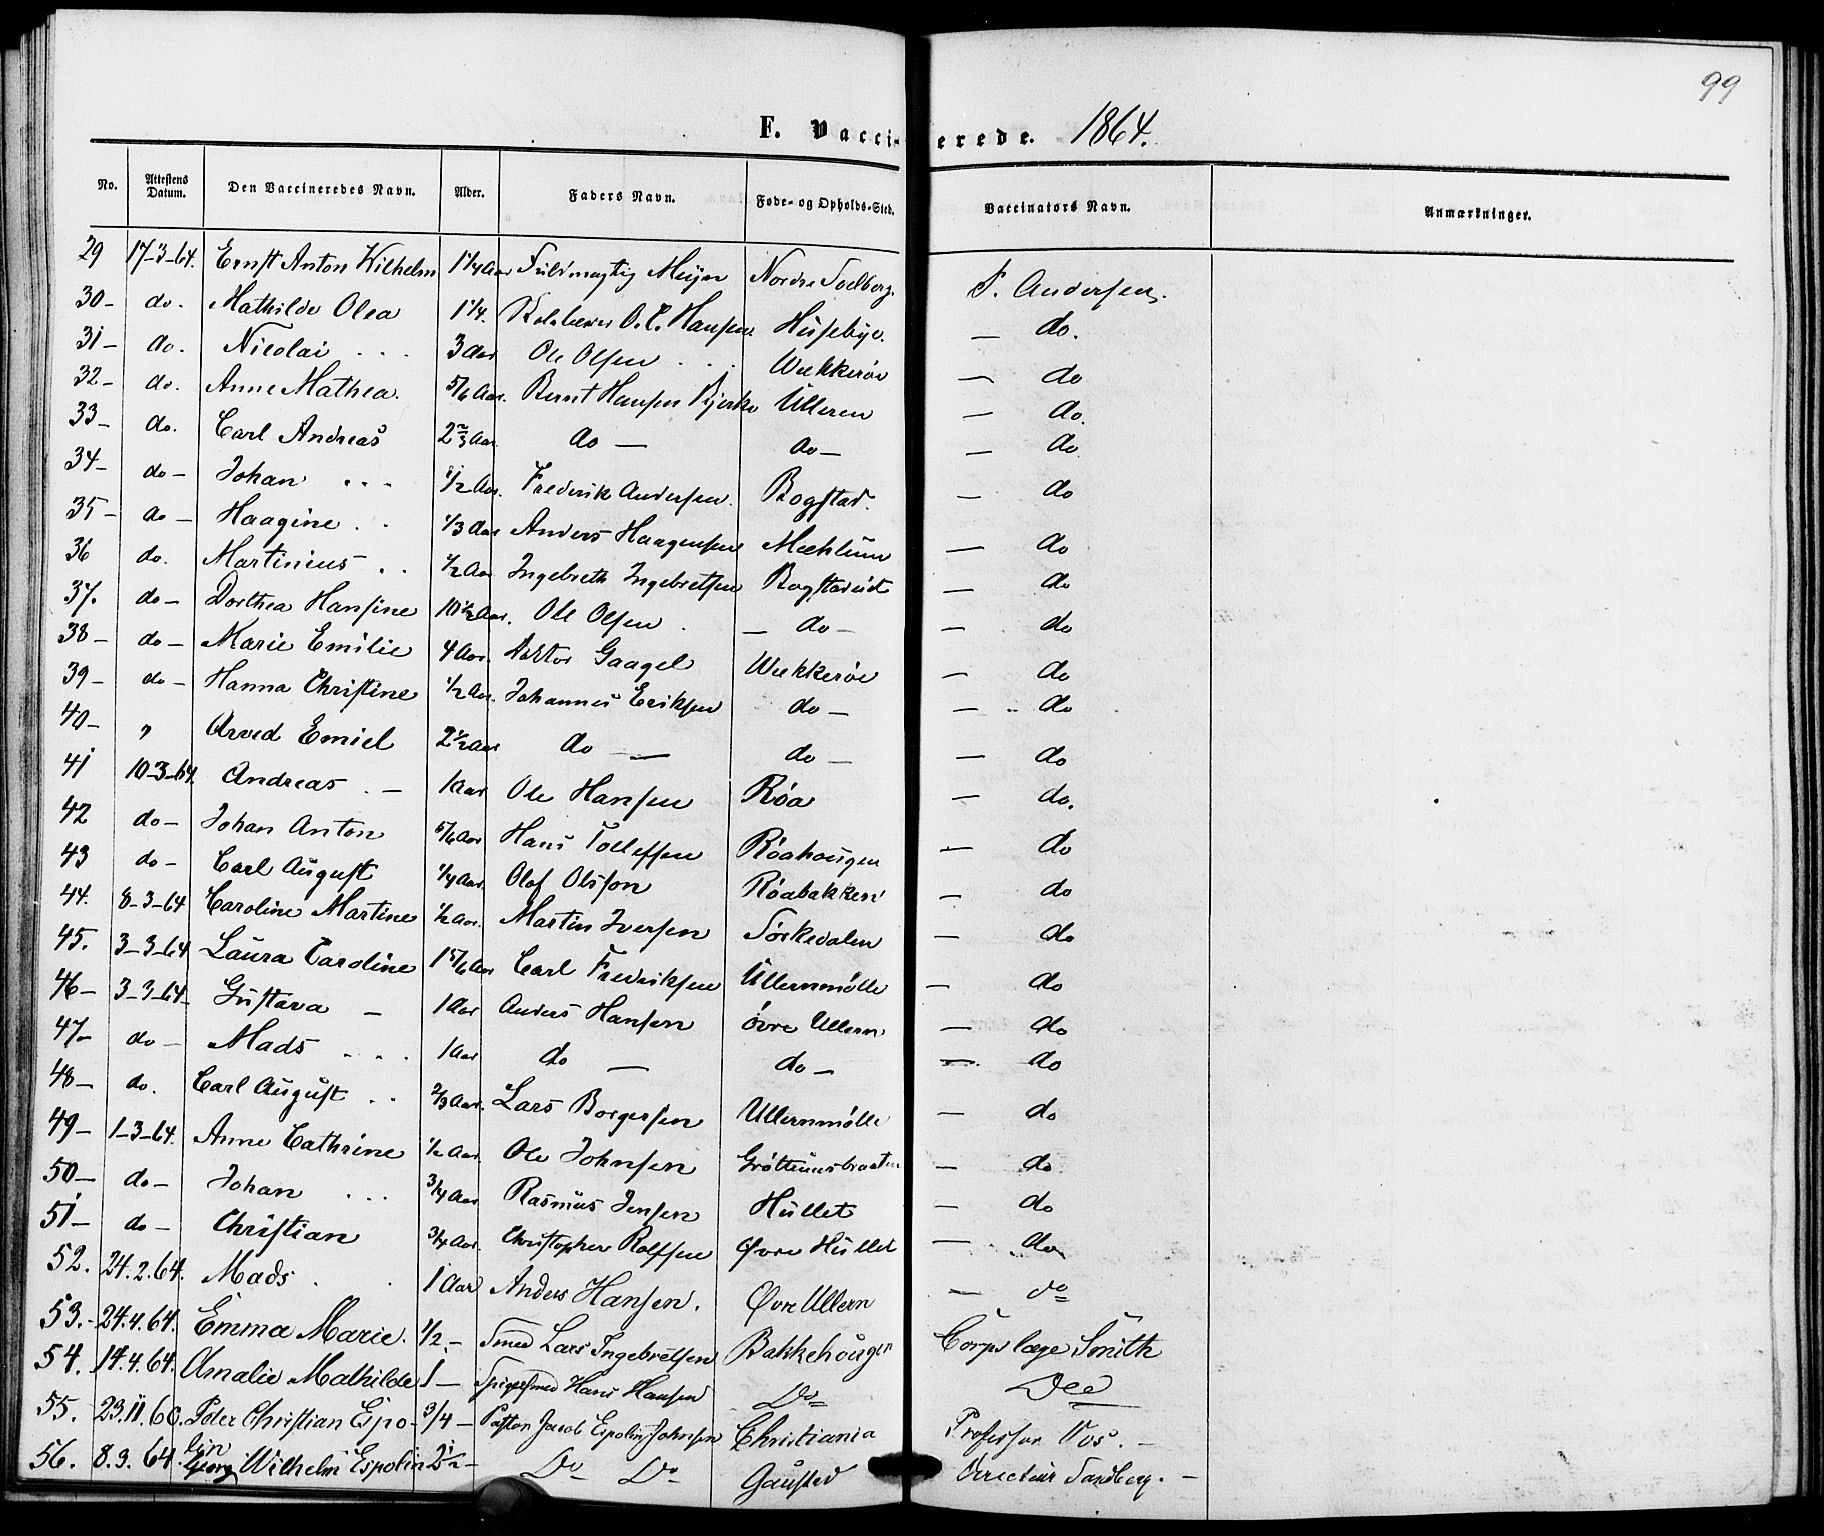 99
F. Vaccinerede. 1864.
No. Attestens Datum. Den Vaccineredes Navn. Alder. Faders Navn. Føde- og Opholds-Sted. Vaccinators Navn. Anmærkninger.
29 17-3-64. Ernst Anton Wilhelm 1 1/4 Aar Fuldmægtig Meijer Nordre P. Andersen.
30- do. Mathilde Olea 1 1/4. O. C. Hansen Husebye. - do.
31- do. Nicolai . . . 3 Aar Ole Olsen . . . Wækkerøe - do
32- do. Anne Mathea. 5/6 Aar. Bernt Hansen Bjerke Ulleren - do.
33- do. Carl Andreas 2 2/3 Aar do - do - - do
34- do - Johan . . . 1/2 Aar. Frederik Andersen. Bogstad. - do
35- do - Haagine . . 1/3 Aar Anders Haagensen Mæhlum - do
36 do. Martinius . . 1/2 Aar Ingebreth Ingebretsen Bogstadvd - do
37. do - Dorthea Hansine 10 1/2 Aar. Ole Olsen . - do - - do
38- do - Marie Emilie 4 Aar. Doktor Gaagel Wækkerøe - do
39- do - Hanna Christine 1/2 Aar. Johannes Eriksen do - - do
40- " Arved Emiel 2 1/2 Aar do - do - - do
41 10-3-64. Andreas . - 1 Aar Ole Hansen Røa - do.
42 do - Johan Anton 5/6 Aar Hans Tollefsen Røahougen - do
43 do - Carl August 1/4 Aar. Olof Olsson Røabakken - do
44. 8-3-64 Caroline Martine 1/2 Aar. Martin Iversen Sørkedalen - do
45. 3-3-64 Laura Caroline 1 5/6 Aar Carl Frederiksen Ullernmølle - do
46- 3-3-64- Gustava - 1 Aar Anders Hansen øvre Ullern - do
47- do - Mads . . . 1 Aar do - do - - do
48- do. Carl August . . 2/3 Aar. Lars Borgersen Ullernmølle - do
49- 1-3-64. Anne Cathrine 1/2 Aar. Ole Johnsen Grøttumsbraaten - do
50- do - Johan . . . 3/4 Aar Rasmus Jensen Hullet - do
51- do - Christian 3/4 Aar. Christopher Rolfsen Øvre Hullet - do
52. 24.2.64. Mads . . 1 Aar Anders Hansen. Øvre Ullern - do
53.- 24.4.64. Emma Marie. 1/2.- Smed Lars Ingebretsen Bakkehougen Corpslæge Smith
54. 14.4.64. Amalie Mathilde 1 - Spigersmed Hans Hansen Do
55. 23.11.60. Peder Christian Espo- 3/4 - Pastor Jacob Espolin Johnsen Christiania Professor Vos. -
56. 8.9.64. lin Georg Wilhelm Espolin 2 1/2 - Do Do Gaustad Directeur Sandberg. -